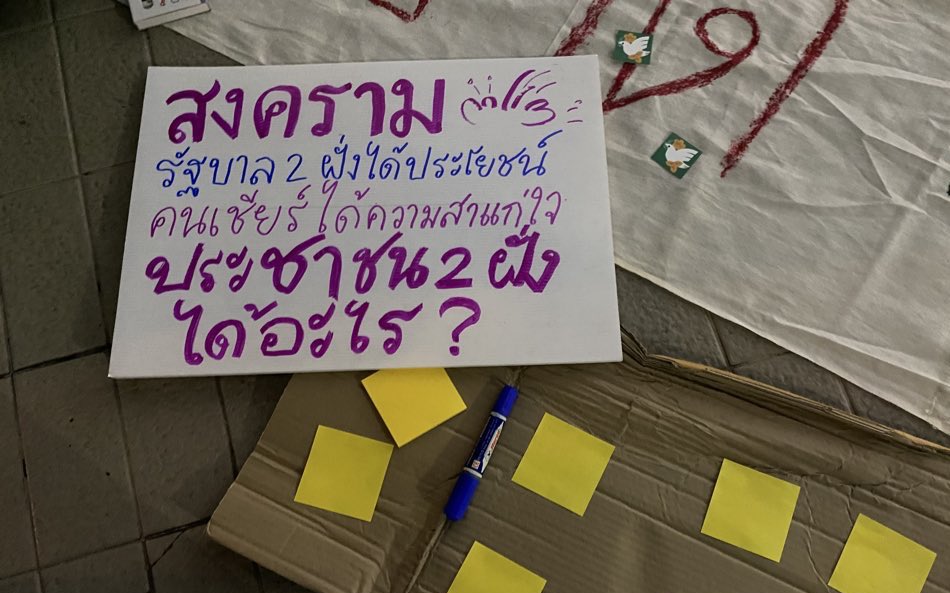 สงคราม
รัฐบาล 2 ฝั่งได้ประโยชน์
คนเชียร์ ได้ความสาแก่ใจ
ประชาชน 2 ฝั่ง
ได้อะไร ?